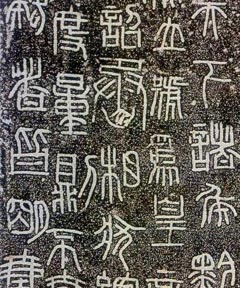 天下諸侯黔
立號為皇帝
詔丞相狀綰
度量則不
者皆明壹